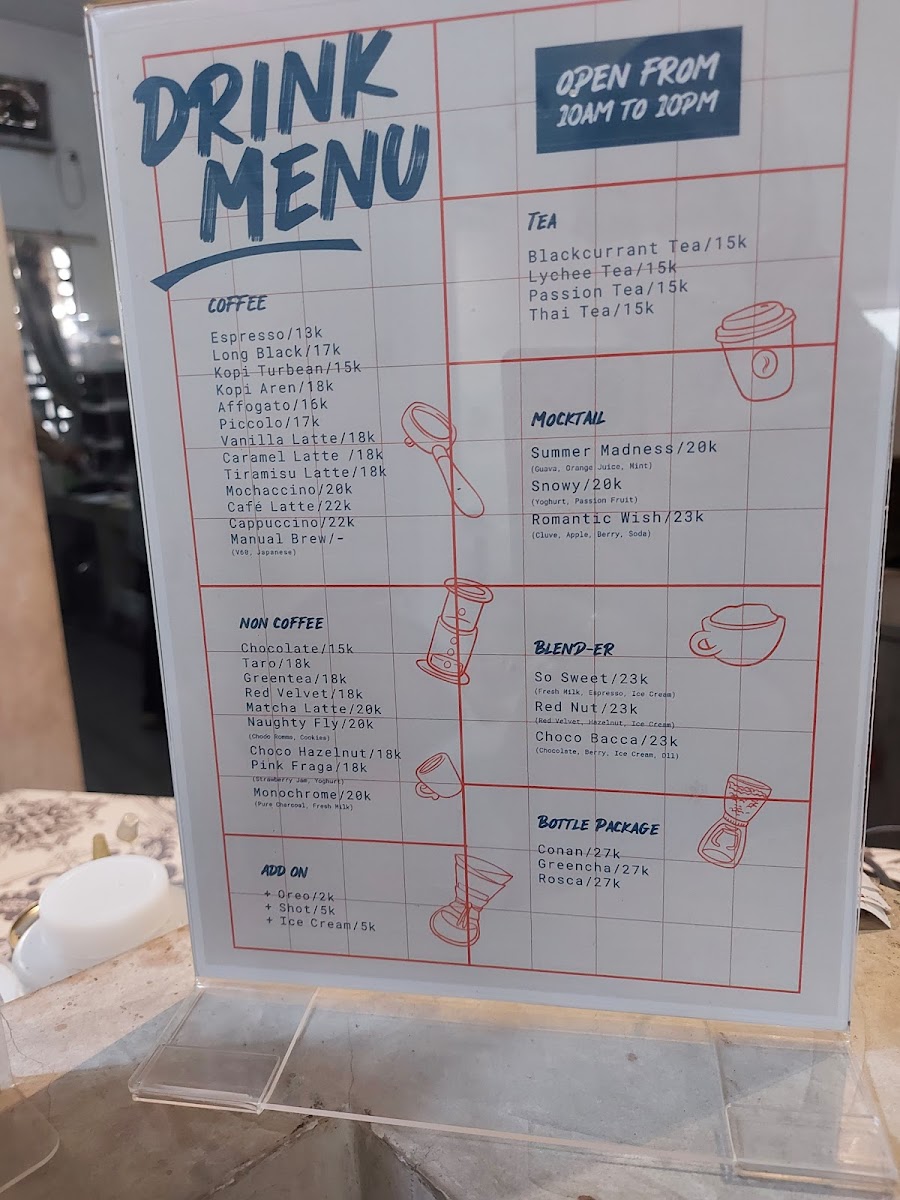 DRINK
MENU
OPEN FROM
10AM TO 10PM
COFFEE
Espresso/13k
Long Black/17k
Kopi Turbean/15k
Kopi Aren/18k
Affogato/16k
Piccolo/17k
Vanilla Latte/18k
Caramel Latte /18k
Tiramisu Latte/18k
Mochaccino/20k
Café Latte/22k
Cappuccino/22k
Manual Brew/-
(V60, Japanese)
NON COFFEE
Chocolate/15k
Taro/18k
Greentea/18k
Red Velvet/18k
Matcha Latte/20k
Naughty Fly/20k
(Choco Romma, Cookies)
Choco Hazelnut/18k
Pink Fraga/18k
(Strawberry Jam, Yoghurt)
Monochrome/20k
(Pure Charcoal, Fresh Milk)
ADD ON
+ Oreo/2k
+ Shot/5k
+ Ice Cream/5k
TEA
Blackcurrant Tea/15k
Lychee Tea/15k
Passion Tea/15k
Thai Tea/15k
MOCKTAIL
Summer Madness/20k
(Guava, Orange Juice, Mint)
Snowy/20k
(Yoghurt, Passion Fruit)
Romantic Wish/23k
(Cluve, Apple, Berry, Soda)
BLEND-ER
So Sweet/23k
(Fresh Milk, Espresso, Ice Cream)
Red Nut/23k
(Red Velvet, Hazelnut, Ice Cream)
Choco Bacca/23k
(Chocolate, Berry, Ice Cream, Oil)
BOTTLE PACKAGE
Conan/27k
Greencha/27k
Rosca/27k